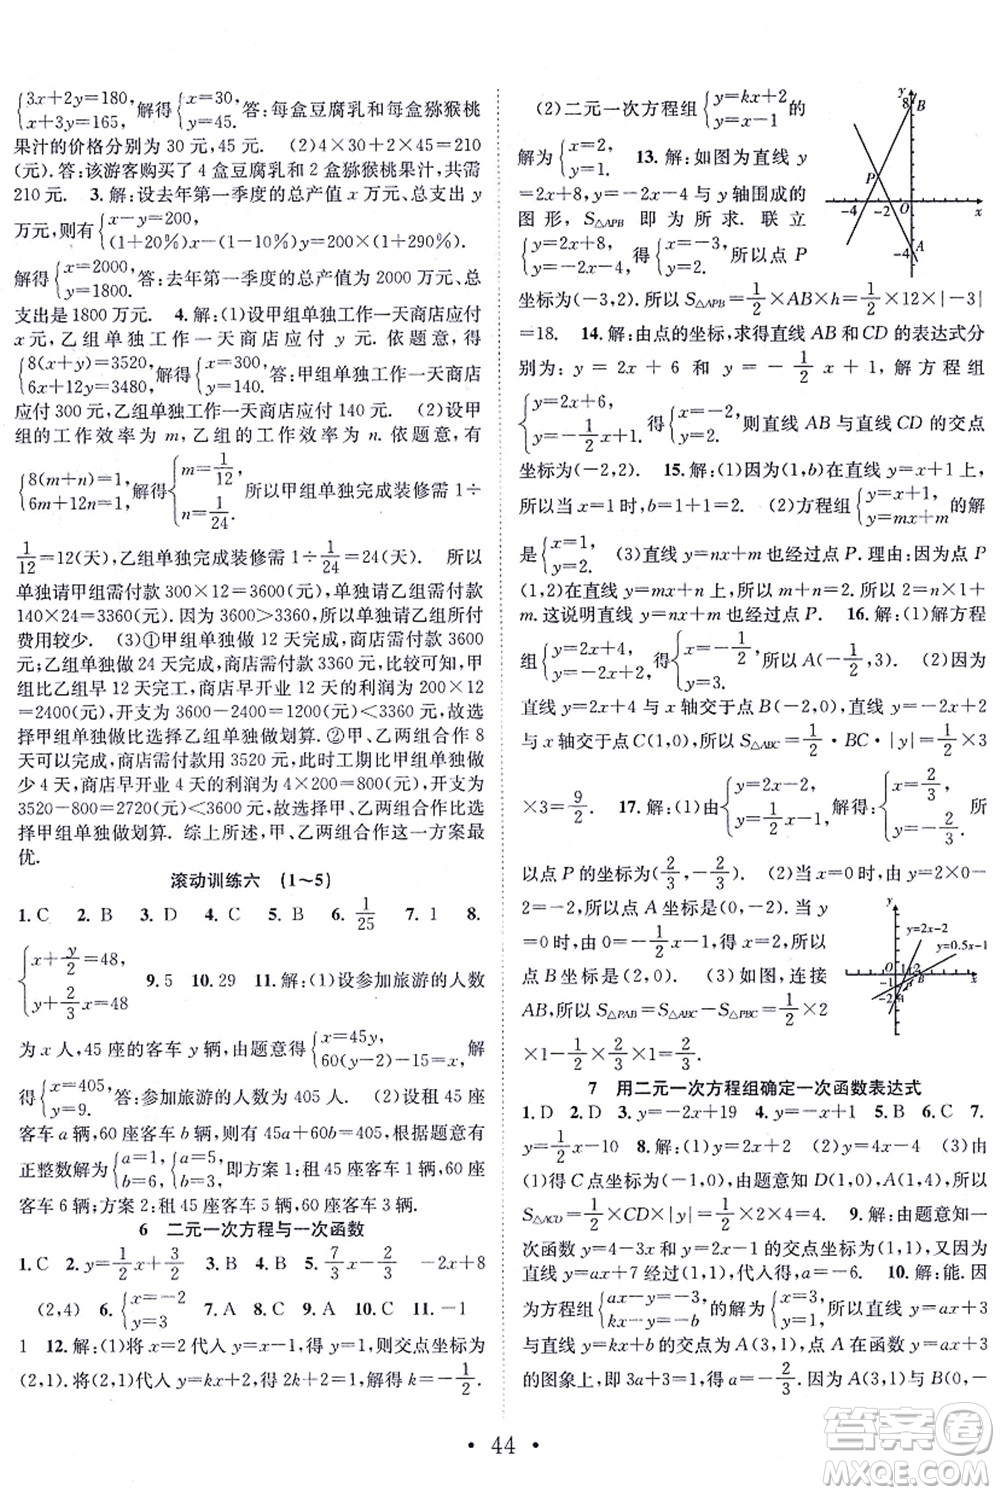 {3x+2y=180, x+3y=165, 解得{x=30, y=45. 答:每盒豆腐乳和每盒猕猴桃
果汁的价格分别为 30 元,45 元. (2)4×30+2×45=210
(元). 答:该游客购买了 4 盒豆腐乳和 2 盒猕猴桃果汁,共需
210 元. 3. 解:设去年第一季度的总产值 x 万元,总支出 y
万元,则有{x-y=200, (1+20%)x-(1-10%)y=200+750.
解得{x=2000, y=1800. 答:去年第一季度的总产值为 2000 万元,总
支出是 1800 万元. 4. 解:(1)设甲组单独工作一天商店应付
x 元,乙组单独工作一天商店应付 y 元. 依题意,得
{8(x+y)=3520, 6x+12y=3480, 解得{x=300, y=140. 答:甲组单独工作一天商店
应付 300 元,乙组单独工作一天商店应付 140 元. (2)设甲
组的工作效率为 m,乙组的工作效率为 n. 依题意,有
{8(m+n)=1, 6m+12n=1, 解得{m=1/12, n=1/24. 所以甲组单独完成装修需 1÷
1/12=12(天),乙组单独完成装修需 1÷1/24=24(天). 所以
单独请甲组需付款 300×12=3600(元),单独请乙组需付款
140×24=3360(元). 因为 3600>3360,所以单独请乙组所付
费用较少. (3)①甲组单独做 12 天完成,商店需付款 3600
元;乙组单独做 24 天完成,商店需付款 3360 元,比较可知,甲
组比乙组早 12 天完工,商店早开业 12 天的利润为 200×12
=2400(元),开支为 3600-2400=1200(元)<3360 元,故选
择甲组单独做划算. ②甲、乙两组合作 8
天可以完成,需付款 3520 元,此时工期比甲组单独做
少 4 天,商店早开业 4 天的利润为 4×200=800(元),开支为
3520-800=2720(元)<3600 元,故选择甲、乙两组合作比
选择甲组单独做划算. 综上所述,甲、乙两组合作这一方案最
优.
滚动训练六 (1~5)
1. C 2. B 3. D 4. C 5. B 6. 1/25 7. 1 8.
{x+y/2=48, y+2/3x=48 9. 5 10. 29 11. 解:(1)设参加旅游的人数
为 x 人,45 座的客车 y 辆,由题意得{x=45y, 60(y-2)=x+15, 解
得{x=405, y=9. 答:参加旅游的人数为 405 人. (2)设租 45 座
客车 a 辆,60 座客车 b 辆,则 45a+60b=405,根据题意有
正整数解为{a=1, b=6, {a=5, b=3, 即方案 1:租 45 座客车 1 辆,60 座
客车 6 辆;方案 2:租 45 座客车 5 辆,60 座客车 3 辆.
6 二元一次方程与一次函数
1. C 2. y=1/2x+3/2 3. B 4. B 5. 7/3 -2/3 -2x+8
(2,4) 6. {x=-2 y=3 7. A 8. A 9. A 10. C 11. -1
1 12. 解:(1)将 x=2 代入 y=x-1,得 y=1,则交点坐标为
(2,1). 将(2,1)代入 y=kx+2,得 2k+2=1,解得 k=-1/2.
(2)二元一次方程组{y=kx+2 y=x-1 的
解为{x=2, y=1. 13. 解:如图为直线 y
=2x+8,y=-x-4 与 y 轴围成的
图形,S△APB 即为所求. 联立
{y=2x+8, y=-x-4, 得{x=-3, y=2, 所以点 P
坐标为(-3,2). 所以 S△APB=1/2×AB×h=1/2×12×|-3|
=18. 14. 解:由点的坐标,求得直线 AB 和 CD 的表达式分
别为:y=2x+6 和 y=-1/2x+1,解方程组
{y=2x+6, y=-1/2x+1. 得{x=-2, y=2. 则直线 AB 与直线 CD 的交点
坐标为(-2,2). 15. 解:(1)因为(1,b)在直线 y=x+1 上,
所以当 x=1 时,b=1+1=2. (2)方程组{y=x+1, y=mx+m 的解
是{x=1, y=2. (3)直线 y=nx+m 也经过点 P. 理由:因为点 P
(1,2)在直线 y=mx+n 上,所以 m+n=2,所以 2=n×1+
m. 这说明直线 y=nx+m 也经过点 P. 16. 解:(1)解方程
组{y=2x+4, y=-2x+2, 得{x=-1/2, y=3. 所以 A(-1/2,3). (2)因为
直线 y=2x+4 与 x 轴交于点 B(-2,0),直线 y=-2x+2
与 x 轴交于点 C(1,0),所以 S△ABC=1/2·BC·|y|=1/2×3
×3=9/2. 17. 解:(1)由{y=1/2x-1, y=-2x+2, 解得:{x=2/3, y=-2/3. 所
以点 P 坐标为(2/3,-2/3). (2)当 x=0 时,y=1/2×0-1=
-1,所以点 A 坐标为(0,-1),当 y
=0 时,由 0=-2x+2,得 x=1,所以
点 B 坐标为(2,0). (3)如图,连接
AB,所以 S△PAB=S△ABC-S△PBC=1/2×2
×1-1/2×1×2/3=2/3.
y 8 B P -4 -2 O x A -4
y y=2x-2 y=0.5x-1 O 1 2 x B -1 -2 A
7 用二元一次方程组确定一次函数表达式
1. D 2. D 3. y=-2x+19 4. y=-x+1 5. B 6. C 7.
y=1/2x-10 8. 解:(1)y=2x+2 (2)y=4x+4 (3)由(1)
的得 C 点坐标为(-1,0),由(2)得 D 点坐标为(0,4),所以
S△ACD=1/2×CD×|y|=1/2×2×4=4. 9. 解:由题意知一
次函数 y=4x-3 与 y=-x+2 的交点坐标为(1,1),又因为
直线 y=ax+7 经过(1,1),代入得,a=-6. 10. 解:能. 因
为方程组{ax-y=-3, kx-y=-b 的解为{x=3, y=1. 所以直线 y=ax+3
与直线 y=kx+b 的交点为 A(3,1),点 A 在函数 y=ax+3
的图象上,即 3a+3=1,得 a=-2/3. 又因为 A(3,1)与 B(0,-
• 44 •
答案圈
MXQE.COM